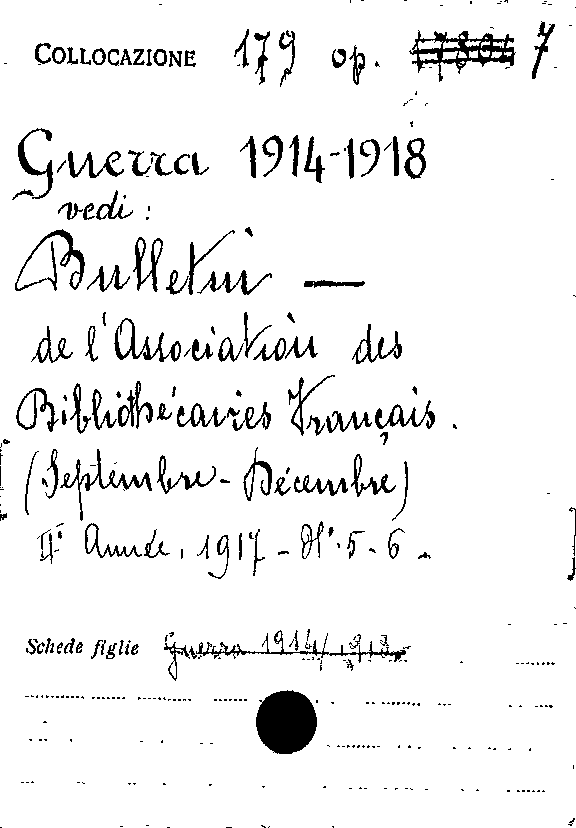 COLLOCAZIONE 179 op. 17804 7
Guerra 1914-1918
vedi:
Bulletin —
de l'Association des
Bibliothécaires Français.
(Septembre - Décembre)
IIe Année, 1917 - No. 5-6.
Schede figlie Guerra 1914/1918